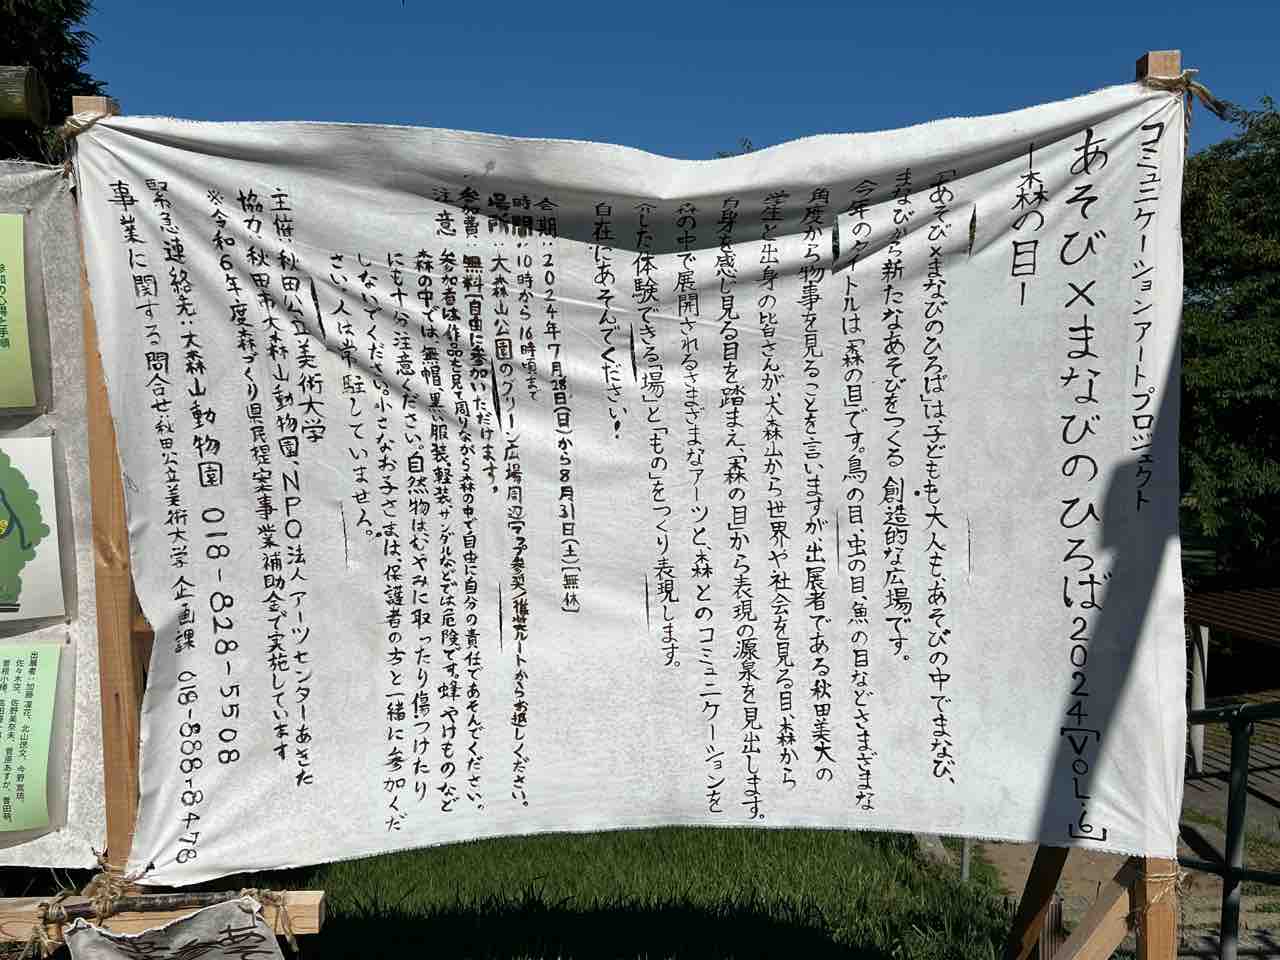 コミュニケーションアートプロジェクト
あそび×まなびのひろば2024[VOL.6]
―森の目―
「あそび×まなびのひろば」は、子どもも、大人も、あそびの中でまなび、
まなびから新たなあそびをつくる 創造的な広場です。
今年のタイトルは「森の目」です。鳥の目、虫の目、魚の目などさまざまな
角度から物事を見ることを言いますが、出展者である秋田美大の
学生と出身の皆さんが、大森山から世界や社会を見る目、森から
自身を感じ見る目を踏まえ、「森の目」から表現の源泉を見出します。
森の中で展開されるさまざまなアーツと、森とのコミュニケーションを
介した体験できる「場」と「もの」をつくり表現します。
自在にあそんでください!
会期:2024年7月28日(日)から8月31日(土)[無休]
時間:10時から16時頃まて
場所:大森山公園のグリーン広場周辺
参加費:無料[自由に参加いただけます。
注意 参加者は作品を見て周りながら森の中で自由に自分の責任であそんでください。
森の中では、無帽、黒い服装、軽装、サンダルなどでは危険です。蜂やけものなど
にも十分注意ください。自然物はむやみに取ったり傷つけたり
しないでください。小さなお子さまは、保護者の方と一緒に参加くだ
さい。人は常駐していません。
主催:秋田公立美術大学
協力:秋田市大森山動物園、NPO法人アーツセンターあきた
※令和6年度森づくり県民提案事業補助金で実施しています
緊急連絡先:大森山動物園 018-828-5508
事業に関する問合せ:秋田公立美術大学 企画課 018-888-8478